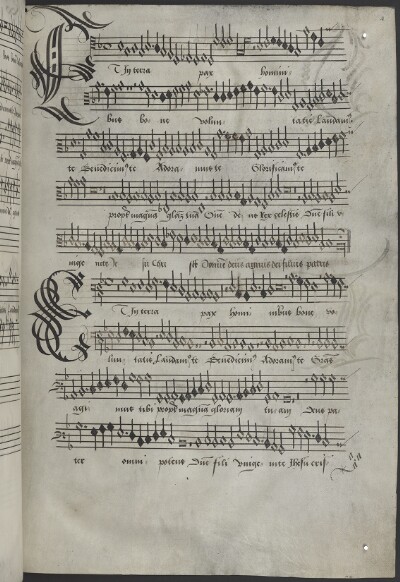 Et in terra pax homini
bus bo ne volun tatis Laudamꝰ
te Benedicimꝰ te Adora mus te Glorificamꝰ te
propt magnā gloriā tuā Dn̄e deus rex celestis Dn̄e fili v
nige nite Jhesu Christe Domine deus agnus dei filius patris
Et in terra pax homi nibus bone vo
lun tatis Laudamꝰ te Benedicimꝰ te Adoramꝰ te Gras
agi mus tibi propt magnā gloriam tu am Deus pa
ter omni potens Dn̄e fili vnige nite Jhesu cris